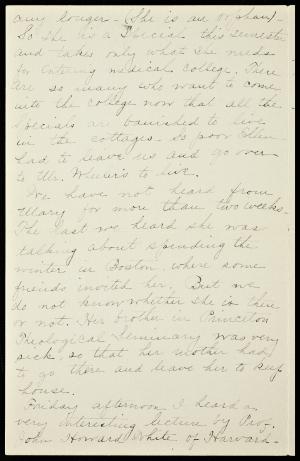 any longer - (She is an orphan) -
So she is a Special this semester
and takes only what she needs
for entering medical college. There
are so many who want to come
into the college now that all the
Specials are banished to live
in the cottages. So poor Ellen
had to leave us and go over
to Mr. Wheeler's to live.
We have not heard from
Mary for more than two weeks.
The last we heard she was
talking about spending the
winter in Boston where some
friends invited her. But we
do not know whether she is there
or not. Her brother in Princeton
Theological Seminary was very
sick so that her mother had
to go there and leave her to keep
house.
Friday afternoon I heard a
very interesting lecture by Prof.
John Howard White of Harvard -